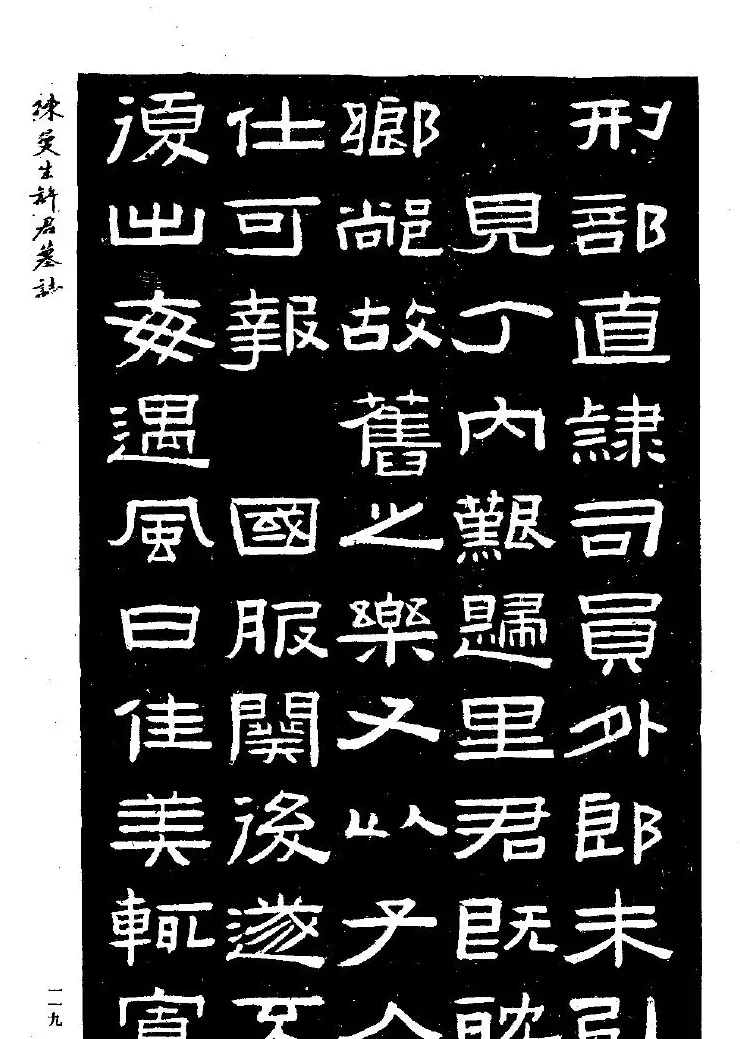 刑部直隸司員外郎未引
見丁內艱歸里君既耽
鄉邨故舊之樂又以子人
仕可報國服闋後遂不
復出每遇風日佳美輒賓
陳曼生許君墓誌
一一九